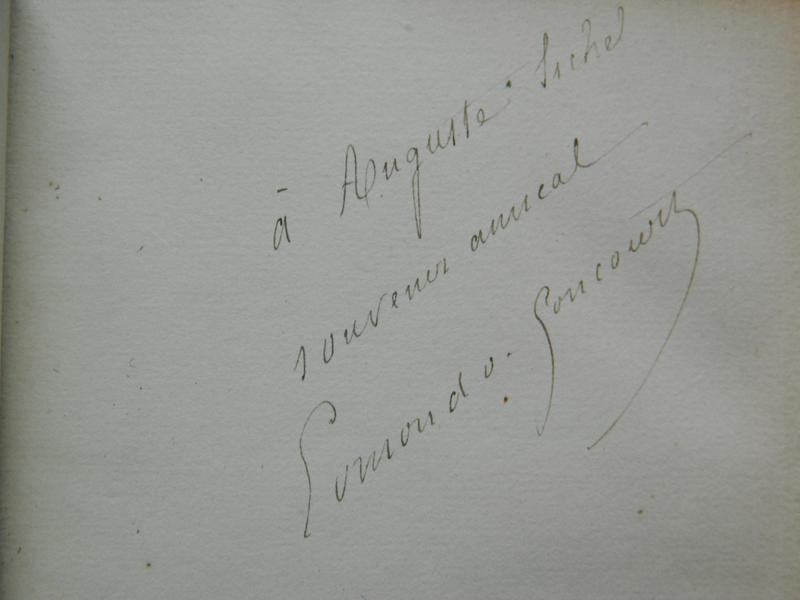 à Auguste Sichel
souvenir amical
Edmond de Goncourt